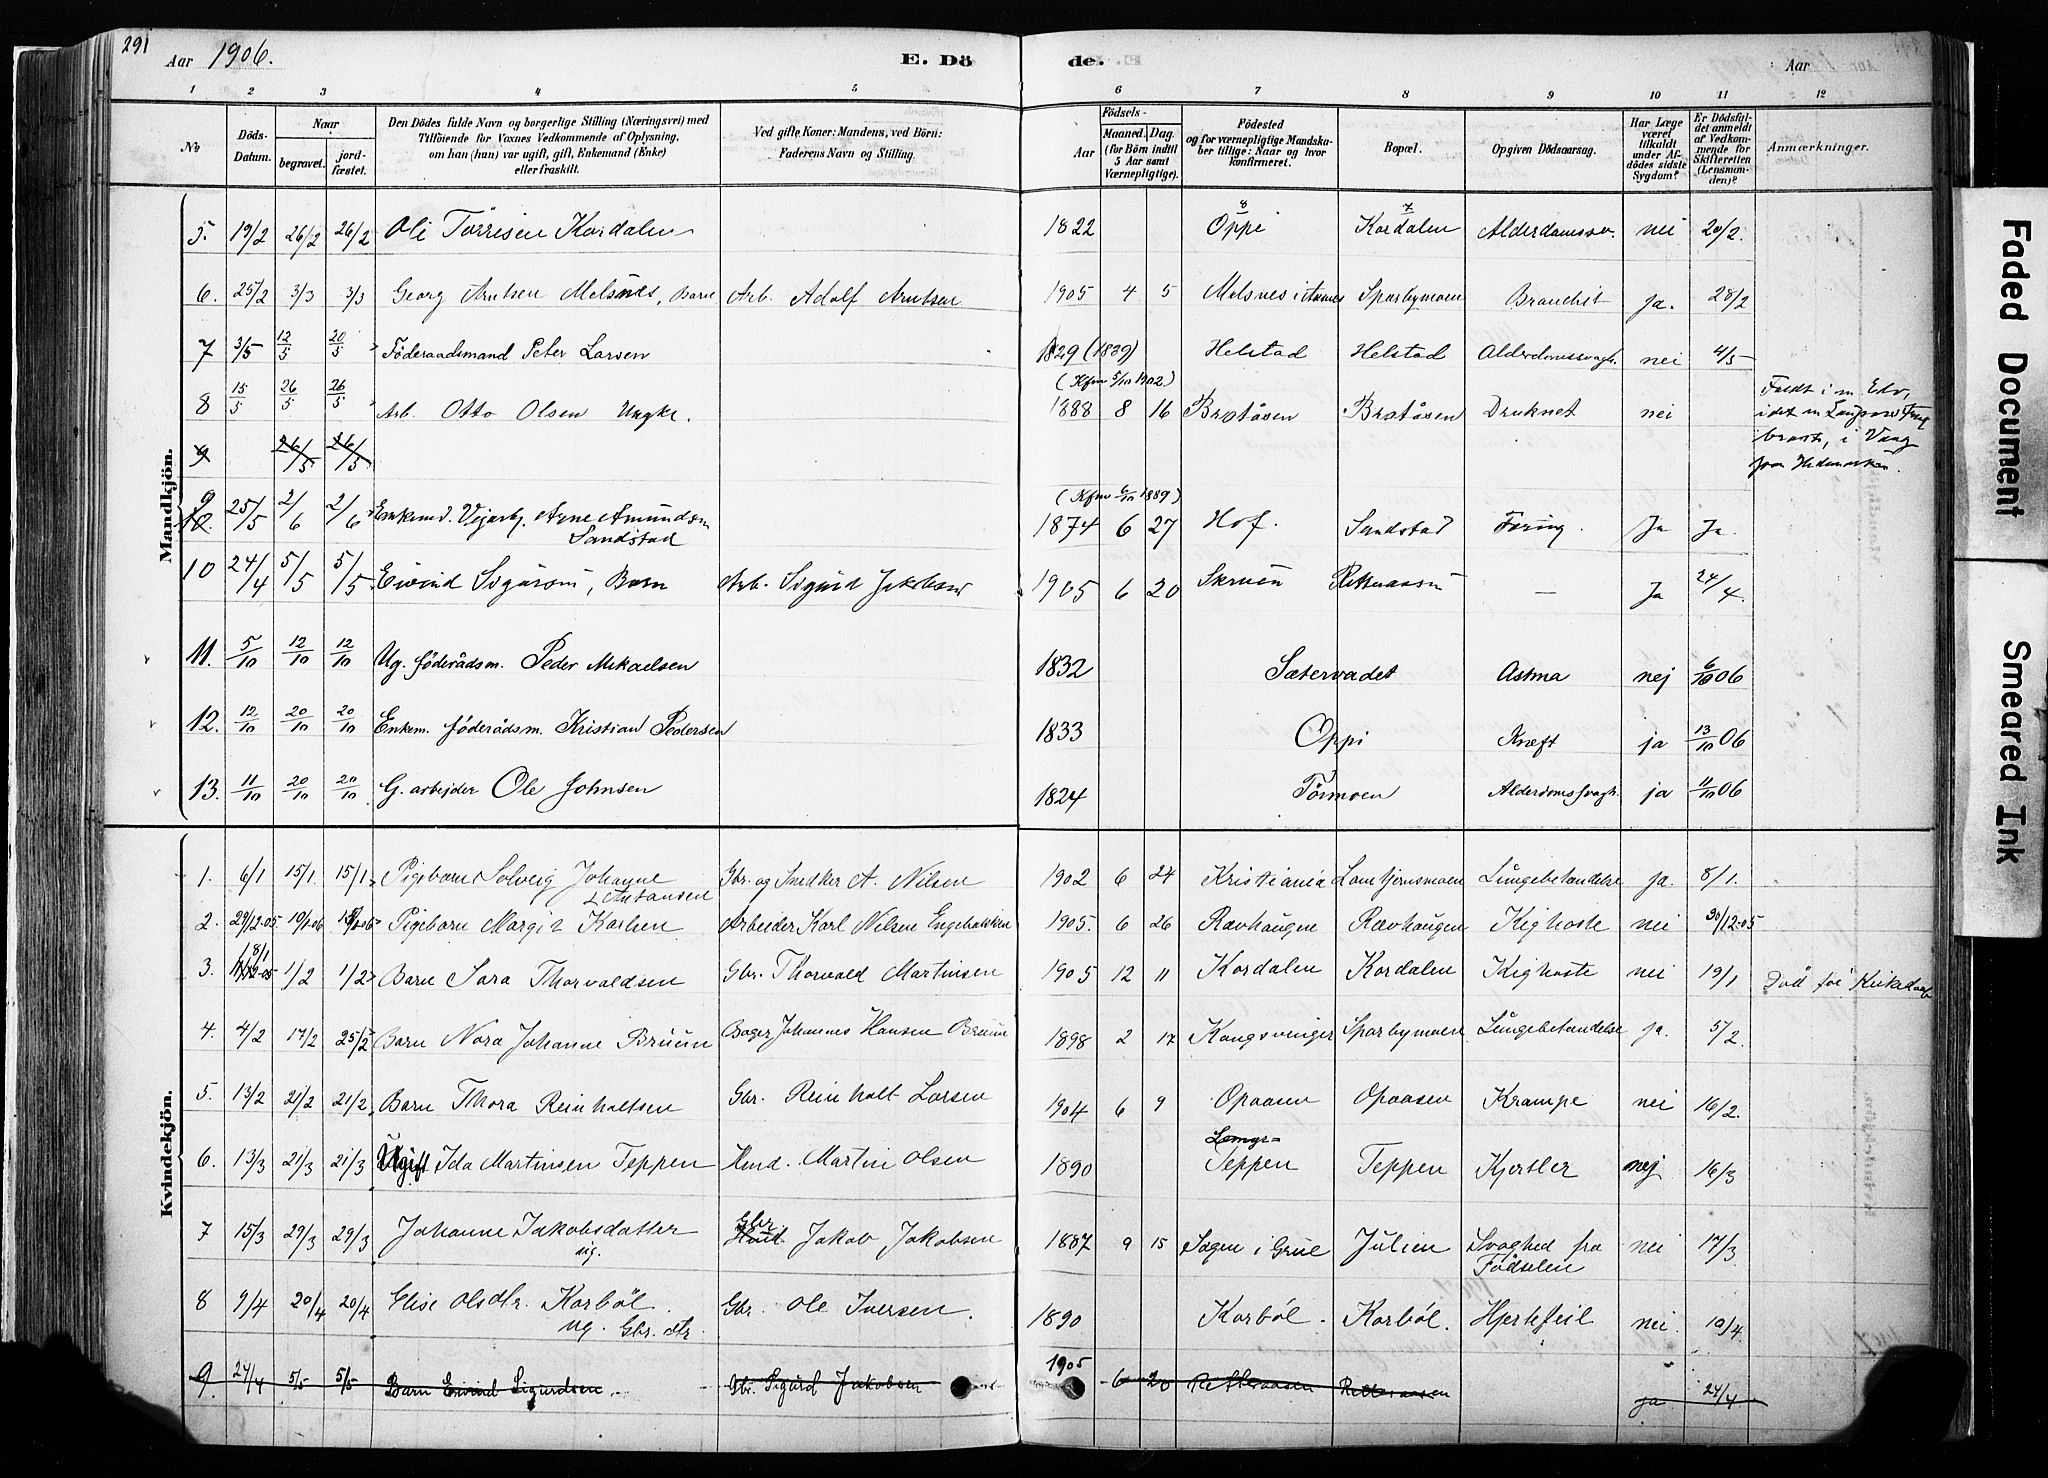 291
Aar 1906.
E. Dö
de.
Aar
1 2 3 4 5 6 7 8 9 10 11 12
No
Döds-Datum.
Naar
begravet.
jord-fæstet.
Den Dödes fulde Navn og borgerlige Stilling (Næringsvei) med
Tilföiende for Voxnes Vedkommende af Oplysning,
om han (hun) var ugift, gift, Enkemand (Enke)
eller fraskilt.
Ved gifte Koner: Mandens, ved Börn:
Faderens Navn og Stilling.
Födsels-
Aar
Maaned. Dag.
(for Börn indtil
5 Aar samt
Værnepligtige).
Födested
og for værnepligtige Mandska-
ber tillige: Naar og hvor
konfirmeret.
Bopæl.
Opgiven Dödsaarsag.
Har Læge
været
tilkaldt
under Af-
dödes sidste
Sygdom?
Er Dödsfal-
det anmeldt
af Vedkom-
mende for
Skifteretten
(Lensman-
den)?
Anmærkninger.
Mandkjön.
5. 19/2 26/2 26/2 Ole Törrisen Kordalen 1822 8 Oppi 7 Kordalen Alderdomssv. nei 20/2.
6. 25/2 3/3 3/3 Georg Arntsen Melsnes, Barn Arb. Adolf Arntsen 1905 4 5 Melsnes i Sparbymoen Bronchit ja. 28/2
7 3/5 12/5 20/5 Föderaadsmand Peter Larsen 1829 (1839) Helstad Helstad Alderdomssvagh. nei 4/5
(Kfm 5/10 1902.)
8 15/5 26/5 26/5 Arb. Otto Olsen Ungke. 1888 8 16 Bråtåsen Bråtåsen Druknet nei
Faldt i m Elv,
i det en
brast, i Vaag
paa Hedemarken.
9 26/5 26/5
(Kfm 6/10 1889)
9 10. 25/5 2/6 2/6 Enkemd. Vejarbj. Arne Amundsn 1874 6 27 Hof. Sandstad Tæring. Ja Ja
Sandstad
10 24/4 5/5 5/5 Eivind Sigursn, Barn Arb. Sigurd Jakobsen 1905 6 20 Skruen Rettaasn — Ja 24/4.
11. 5/10 12/10 12/10 Ug. föderådsm. Peder Mikaelsen 1832 Sætervadet Astma nej 6/10 06
12. 12/10 20/10 20/10 Enkem. föderådsm. Kristian Pedersen 1833 Oppi Kræft ja 13/10 06
13. 11/10 20/10 20/10 G. arbejder Ole Johnsen 1824 Törmoen Alderdomssvagh. ja 11/10 06
Kvindekjön.
1. 6/1 15/1 15/1 Pigebarn Solveig Johanne Gbr. og Snedker A. Nilsen 1902 6 24 Kristiania Lomtjernsmoen Lungebetændelse ja. 8/1.
Antonsen
2. 29/12-05 19/1 06 19/1 06 Pigebarn Margit Karlsen Arbeider Karl Nilsen 1905. 6 26 Ravhaugen Ravhaugen Kighoste nei 30/12-05
8/1
3. 1/2 1/2 Barn Sara Thorvaldsen Gbr. Thorvald Martinsen 1905 12 11 Kordalen Kordalen Kighoste nei 19/1 Död för Kirkedaab
4. 4/2 17/2 25/2 Barn Nora Johanne Bruun Bager Johannes Hansen Bruun 1898 2 17 Kongsvinger Sparbymoen Lungebetændelse ja. 5/2.
5. 13/2 21/2 21/2 Barn Thora Reinholtsen Gbr. Reinholt Larsen 1904 6 9 Opaasen Opaasen Krampe nei 16/2.
6. 13/3 21/3 21/3 Ugift Ida Martinsen Teppen Hmd. Martin Olsen 1890 Teppen Teppen Kjertler nej 16/3
7 15/3 29/3 29/3 Johanne Jakobsdatter Gbr Hmd. Jakob Jakobsen 1887 9 15 Sogen i Grue Julien Svaghed fra nei 17/3
ug.
Födselen
8 9/4 20/4 20/4 Elise Olsdtr. Korböl. Gbr. Ole Iversen. 1890 Korböl. Korböl. Hjertefeil nei 10/4.
ug. Gbr. dtr.
9. 24/4 5/5 5/5 Barn Eivind Sigurdsen Gbr. Sigurd Jakobsen 1905 6 20 Retteraasen Retteraasen ja 24/4
Faded Document
Smeared Ink